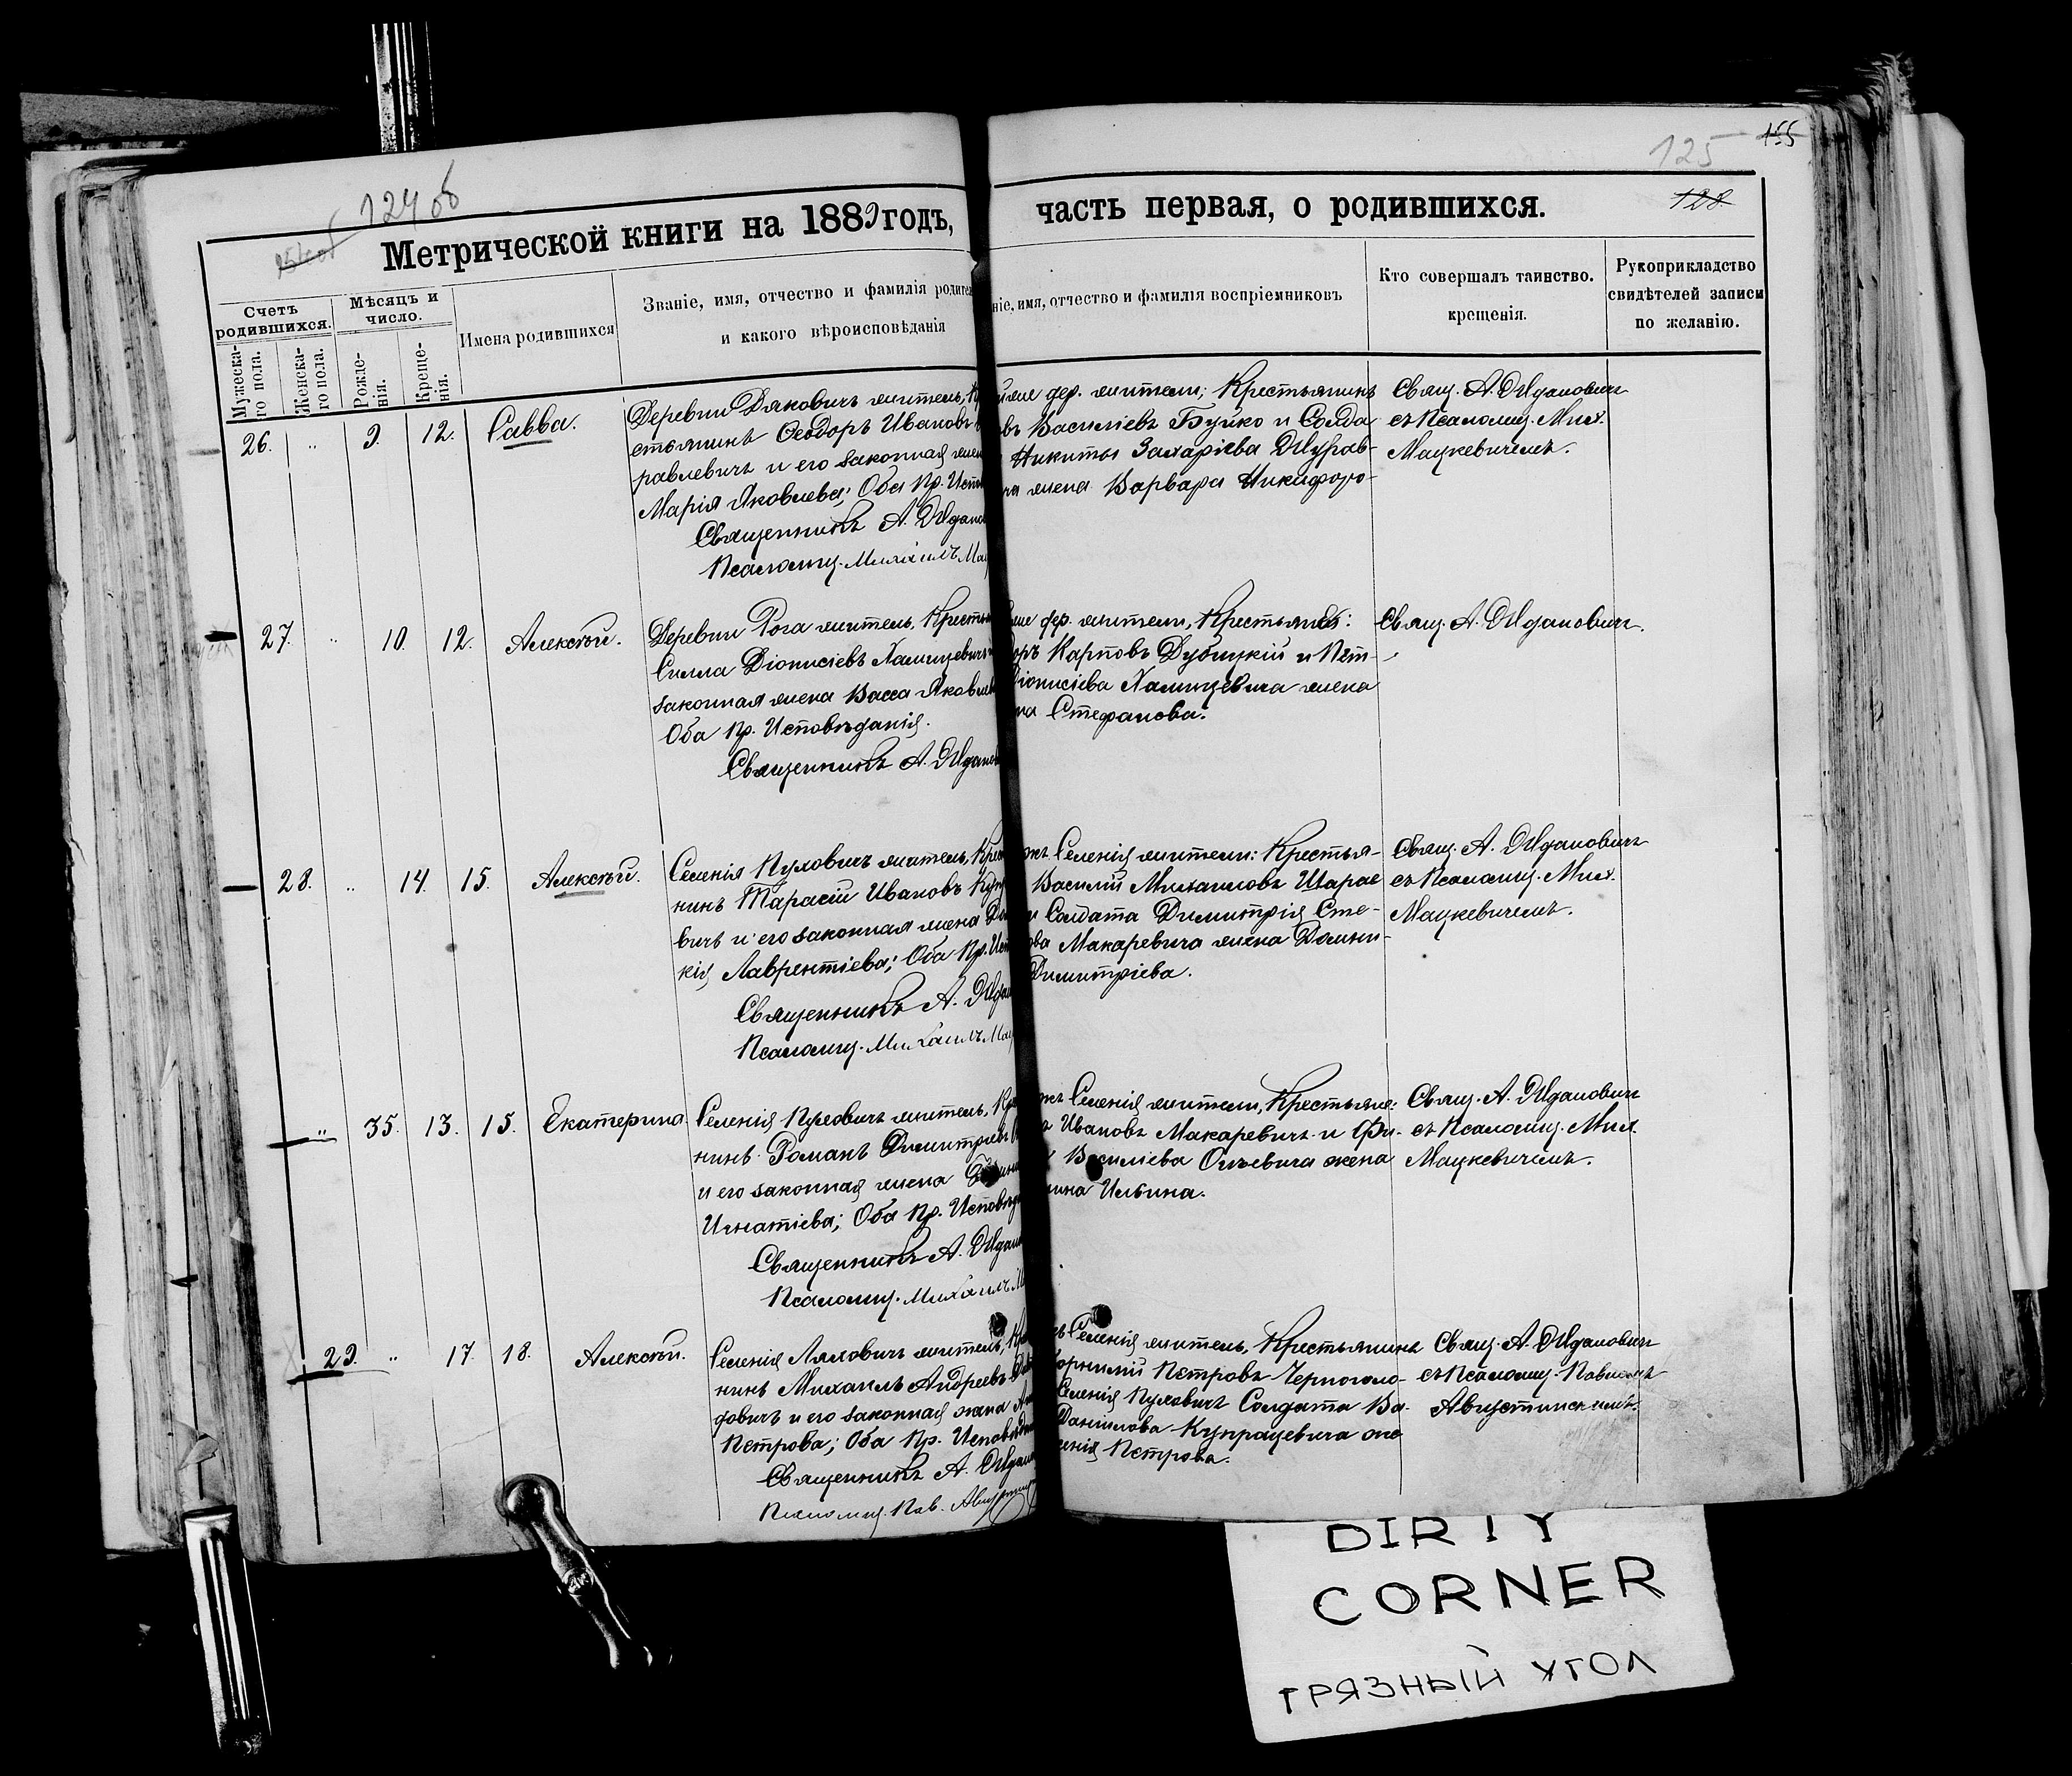 124 об
125
155
128.
Метрической книги на 1889 годъ,
часть первая, о родившихся.
Счетъ родившихся.
Мѣсяцъ и число.
Мужеска-го пола.
Женска-го пола.
Рожде-нія.
Креще-нія.
Имена родившихся
Званіе, имя, отчество и фамилія родите
и какого вѣроисповѣданія
ніе, имя, отчество и фамилія воспріемниковъ
Кто совершалъ таинство.
крещенія.
Рукоприкладство
свидѣтелей записи
по желанію.
26. „ 9. 12. Савва.
Деревни Дяковичъ житель, Кр
стьянинъ Ѳеодоръ Ивановъ
равлевичъ и его законная жен
Марія Яковлева; Оба Пр. Исп
Священникъ А. Ждано
Псаломщ. Михаилъ Мац
йже дер. жители; Крестьянинъ
въ Василіевъ Буйко и Солда
Никиты Захаріева Журав-
ча жена Варвара Никифоро-
Свящ. А. Ждановичъ
съ Псаломщ. Мих.
Мацкевичемъ.
27. „ 10. 12. Алексѣй.
Деревни Рога житель, Крестья
Силла Діонисіевъ Халицевичъ
законная жена Васса Яковле
Оба Пр. Исповѣданія.
Священникъ А. Ждано
же дер. жители, Крестьяне:
оръ Карповъ Дубицкій и Пет-
Діонисіева Халицевича жена
на Стефанова.
Свящ. А. Ждановичъ.
28. „ 14. 15. Алексѣй.
Селенія Пуховичъ житель, Крес
нинъ Тарасій Ивановъ Куп
вичъ и его законная жена До
кія Лаврентіева; Оба Пр. Исп
Священникъ А. Ждан
Псаломщ. Михаилъ Мац
жъ Селенія жители: Крестья-
Василій Михаиловъ Шарае
и Солдата Димитрія Сте-
ова Макаревича жена Домни-
Димитріева.
Свящ. А. Ждановичъ
съ Псаломщ. Мих.
Мацкевичемъ.
„ 35. 13. 15. Екатерина
Селенія Пуховичъ житель, Кре
нинъ Романъ Димитріевъ
и его законная жена
Игнатіева; Оба Пр. Исповѣд
Священникъ А. Ждан
Псаломщ. Михаилъ М
жъ Селенія жители, Крестьяне:
Ивановъ Макаревичъ и Фи-
Василіева Онževича жена
ина Ильина.
Свящ. А. Ждановичъ
съ Псаломщ. Мих.
Мацкевичемъ.
29. „ 17. 18. Алексѣй.
Селенія Ляховичъ житель, Кре
нинъ Михаилъ Андреевъ
довичъ и его законная жена
Петрова; Оба Пр. Исповѣдан
Священникъ А. Ждан
Псаломщ. Пав. Августин
Селенія житель, Крестьянинъ
орнилій Петровъ Черноголо-
Селенія Пуховичъ Солдата Ва-
Даніилова Купрацевича же
енія Петрова.
Свящ. А. Ждановичъ
съ Псаломщ. Павломъ
Августинскимъ.
DIRTY
CORNER
ГРЯЗНЫЙ УГОЛ